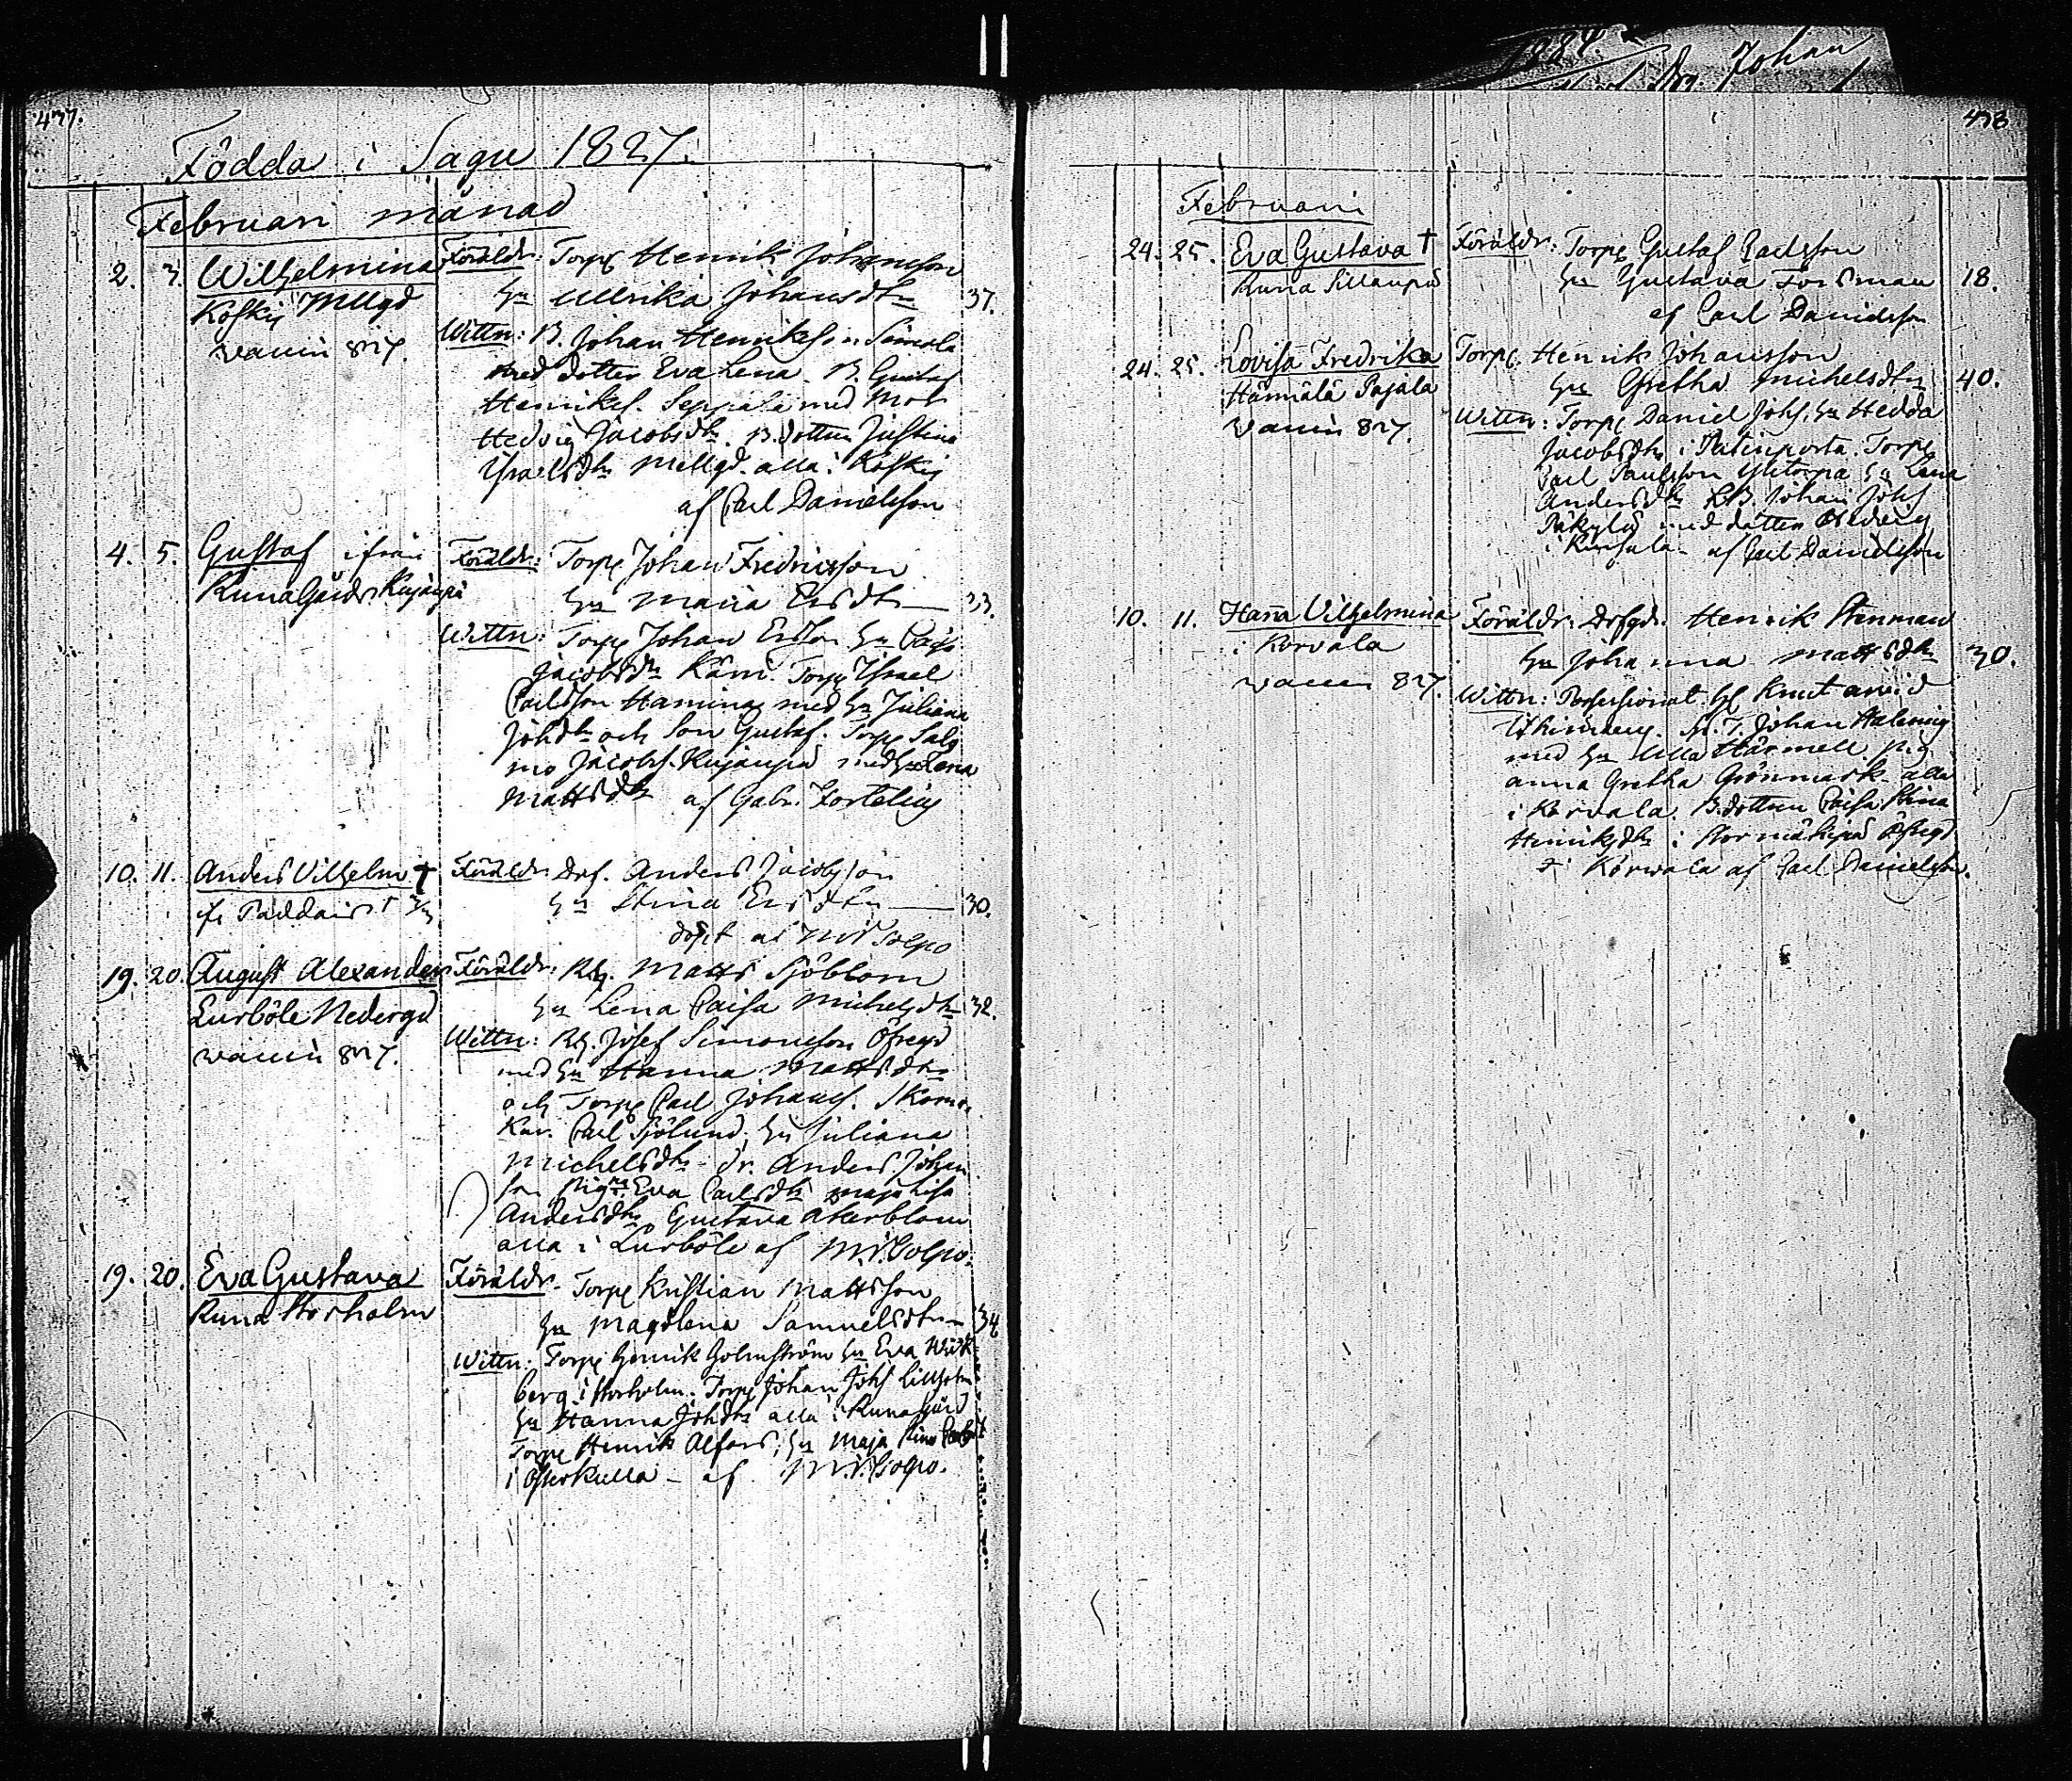 477.
Födda i Sagu 1827.
Februari månad
2. 3. Wilhelmina
Koskis Mellgd
vaccin 827.
Föräldr: Torp. Henrik Johansson
hu Ullrika Johansdtr 37.
Wittn: B. Johan Henriksson Simola
med dotter Eva Lena. B. Gustaf
Henriks. Seppälä med Mor
Hedvig Jacobsdtr. B. dottren Justina
Israelsdtr Mellgd. alla i Koskis
af Carl Danielsson
4. 5. Gustaf ifrån
Runagårds Kujanpä
Föräldr: Torp Johan Fredricsson
hu Maria Ersdtr 33.
Wittn: Torp Johan Ersson hu Caisa
Jacobsdtr Kärni. Torp Israel
Carlsson Hamina med hu Juliana
Johdtr och Son Gustaf. Torp Salo
mo Jacobs. Kujanpä med hu Lena
Mattsdtr af Gabr. Fortelius
10. 11. Anders Vilhelm †
fr Paddais †
Föräldr: Drf. Anders Jacobsson
hu Stina Ersdtr 30.
döpt af N. N. Solpo
19. 20. August Alexander
Lurböle Nedergd
vaccin 827.
Föräldr: Matts Sjöblom
hu Lena Caisa Michelsdtr 32.
Wittn: Josef Simonsson Öfregd
med hu Hanna Mattsdtr
och Torp Carl Johans. Skoma
kar. Carl Sjölund, hu Juliana
Michelsdtr. Dr. Anders Johan
son Eva Carlsdtr Maja Lisa
Andersdtr Gustava Åkerblom
alla i Lurböle af Solpo.
19. 20. Eva Gustava
Runa Storholm
Föräldr. Torp Kristian Mattsson
hu Magdlena Samuelsdtr 34
Wittn: Torp Henrik Holmström hu Eva Wick
berg i Storholm. Torp Johan Johs Lillholm
hu Hanna Johdtr alla i Runagård
Torp Henrik Alfors, hu Maja Stina
i Österkulla - af Solpo.
1884.
Johan
478
Februarii
24. 25. Eva Gustava †
Runa Sillanpä
Föräldr: Torp Gustaf Carlsson
hu Gustava Forsman 18.
af Carl Danielsson
24. 25. Lovisa Fredrika
Hännälä Pajala
vaccin 827.
Torp. Henrik Johansson
hu Gretha Michelsdtr 40.
Wittn: Torp Daniel Johs. hu Hedda
Jacobsdtr i Torp
Carl Paulsson Ylitorpa hu Lena
Andersdtr Johan Johs
med dotter Hedvig
i af Carl Danielsson
10. 11. Hanna Vilhelmina
i Korvala
vaccin 827.
Föräldr. Drfgd. Henrik Stenman
hu Johanna Mattsdtr 30.
Wittn: Knut Arvid
Johan
med hu Ulla p.g.
Anna Gretha Grönmark alla
i Korvala. B. dottren Caisa Stina
Henriksdtr i
i Korwala af Carl Danielsson.